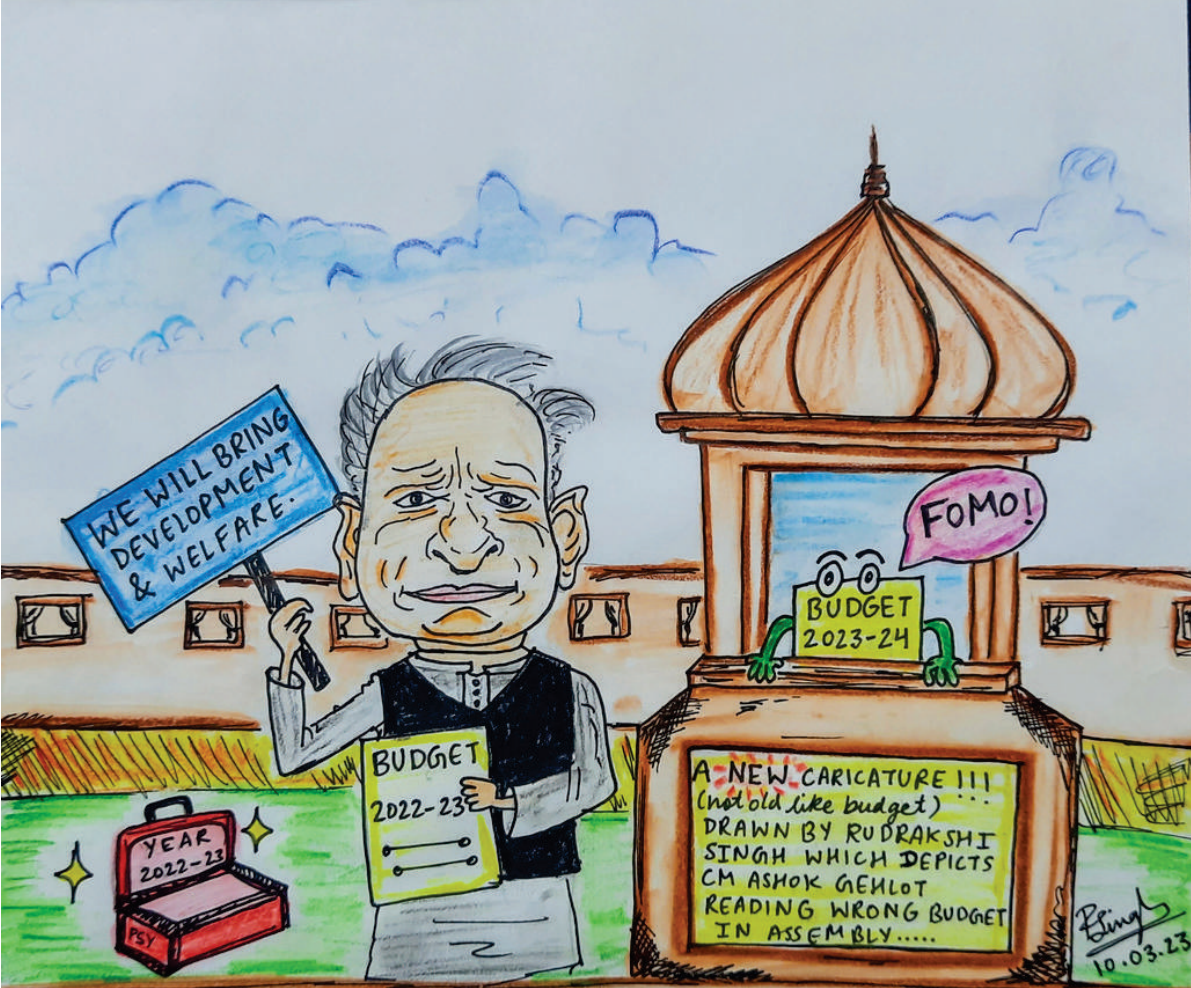 WE WILL BRING
DEVELOPMENT
& WELFARE.
FOMO!
BUDGET
2023-24
BUDGET
2022-23
YEAR
2022-23
PSY
A NEW CARICATURE!!!
(not old like budget)
DRAWN BY RUDRAKSHI
SINGH WHICH DEPICTS
CM ASHOK GEHLOT
READING WRONG BUDGET
IN ASSEMBLY.....
10.03.23